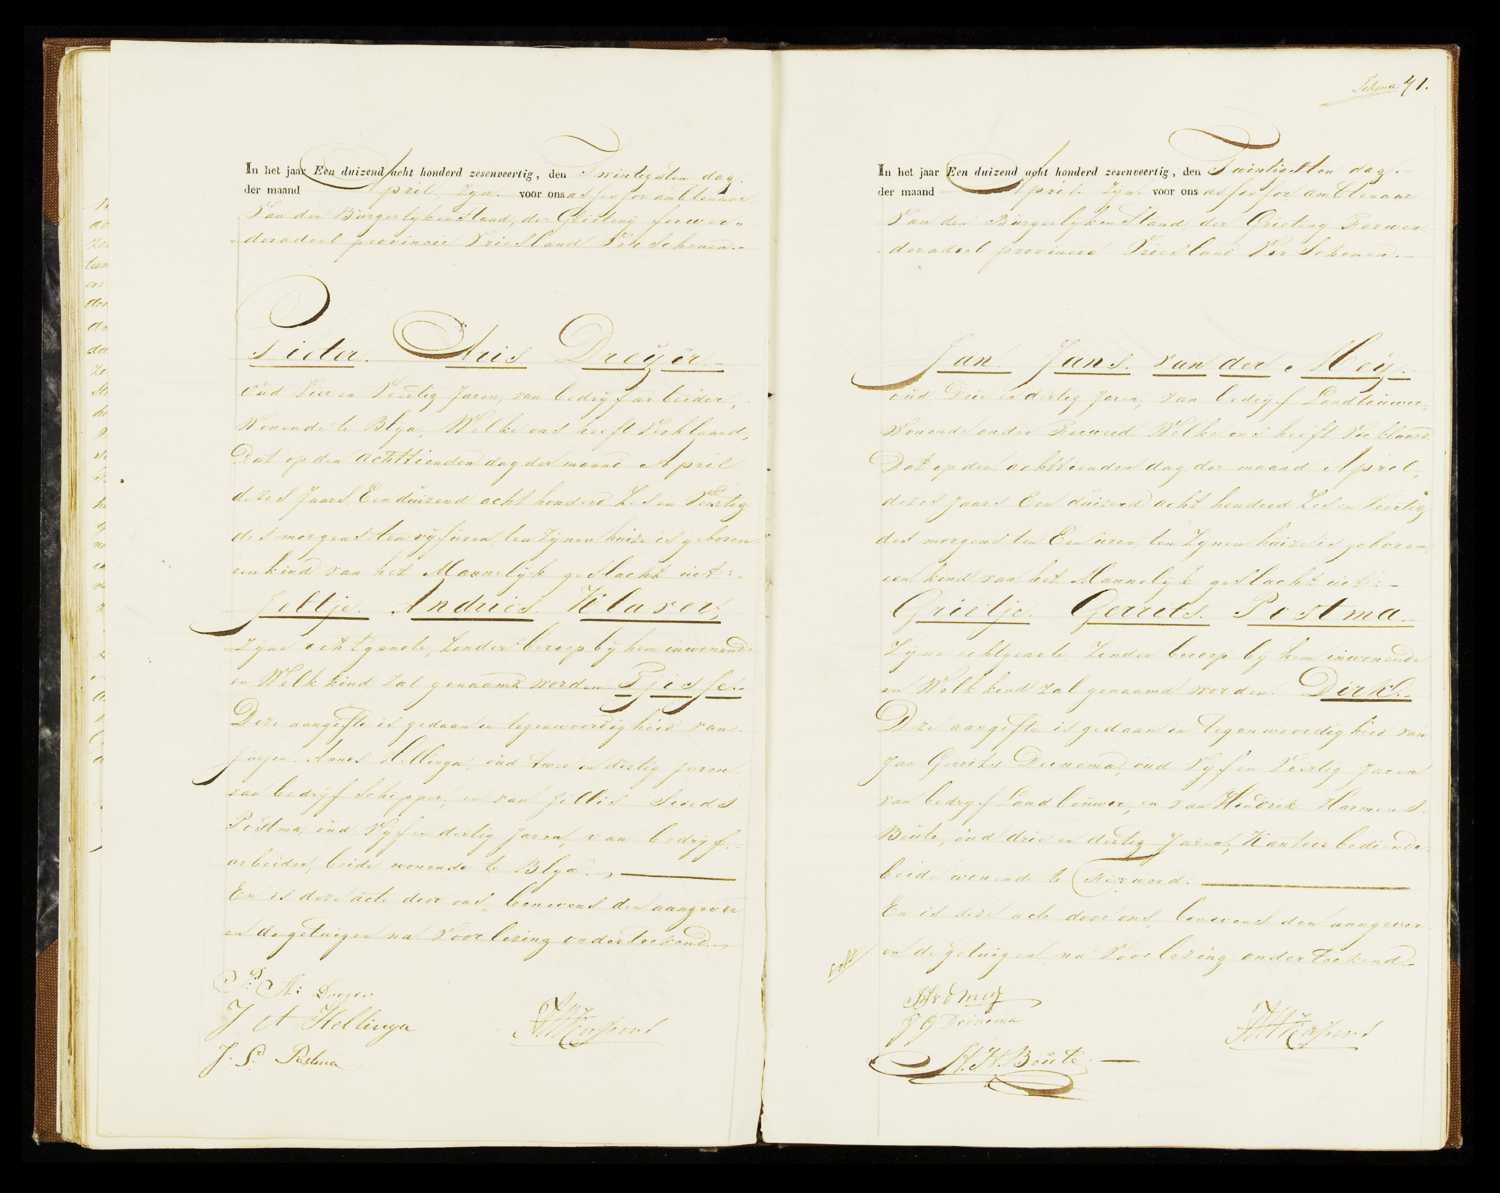 In het jaar Een duizend acht honderd zesenveertig, den Twintigsten dag
der maand April, Zyn voor ons assessor ambtenaar
Van den Bürgerlyken Stand, der Grieteny Ferwer-
deradeel provincie Vriesland Verschenen.
Pieter Aries Dreÿer
oüd Vier en Veertig Jaren, van bedrÿf arbeider,
Wonende te Blya, Welke ons heeft Verklaard,
Dat op den achttienden dag der maand April
dezes Jaars Een duizend acht honderd Zes en Veertig
des morgens ten vÿf üren, ten Zÿnen huize is geboren
een kind van het Mannelÿk geslacht uit
Jeltje Andries Klaver,
Zyne echtgenote, Zonder beroep bÿ hem inwonende
en Welk kind zal genaamd worden
Deze aangifte is gedaan in tegenwoordigheid van
Annes Hellinga, oüd twee en dertig Jaren
van bedrÿf Schipper, en van Jellis Sjoerds
Postma, oüd Vÿf en dertig Jaren, van bedrÿf
arbeider, beide wonende te Blya.
En is deze acte door ons, benevens den aangever
en de getuigen na Voorlezing onderteekend.
P: A: Dreyer
J A Hellinga
J. S. Postma
41.
In het jaar Een duizend acht honderd zesenveertig, den Twintigsten dag
der maand April Zyn voor ons assessor ambtenaar
Van den Bürgerlyken Stand, der Grieteny Ferwer
deradeel provincie Vriesland Verschenen
Jan Jans van der Meÿ
oüd Drie en dertig Jaren, van bedryf Landbouwer,
Wonende onder Ferwerd Welke ons heeft Verklaard
Dat op den achttienden dag der maand April
dezes Jaars Een duizend acht honderd Zes en Veertig
des morgens ten Een üren, ten Zynen huize is geboren
een kind van het Mannelyk geslacht uit
Grietje Gerrits Postma
Zyne echtgenote, Zonder beroep by hem inwonende
en Welk kind zal genaamd worden Dirk.
Deze aangifte is gedaan in tegenwoordigheid van
Jan Gerrits Deinema, oud Vyf en Veertig Jaren
van bedryf Landbouwer, en van Hendrik Harmens
Boüte, oüd drie en dertig Jaren, Kantoor bediende
beide wonende te Ferwerd.
En is deze acte door ons, benevens den aangever
en de getuigen, na Voorlezing onderteekend
J J v d Meÿ
J G Deinema
H. H. Boüte